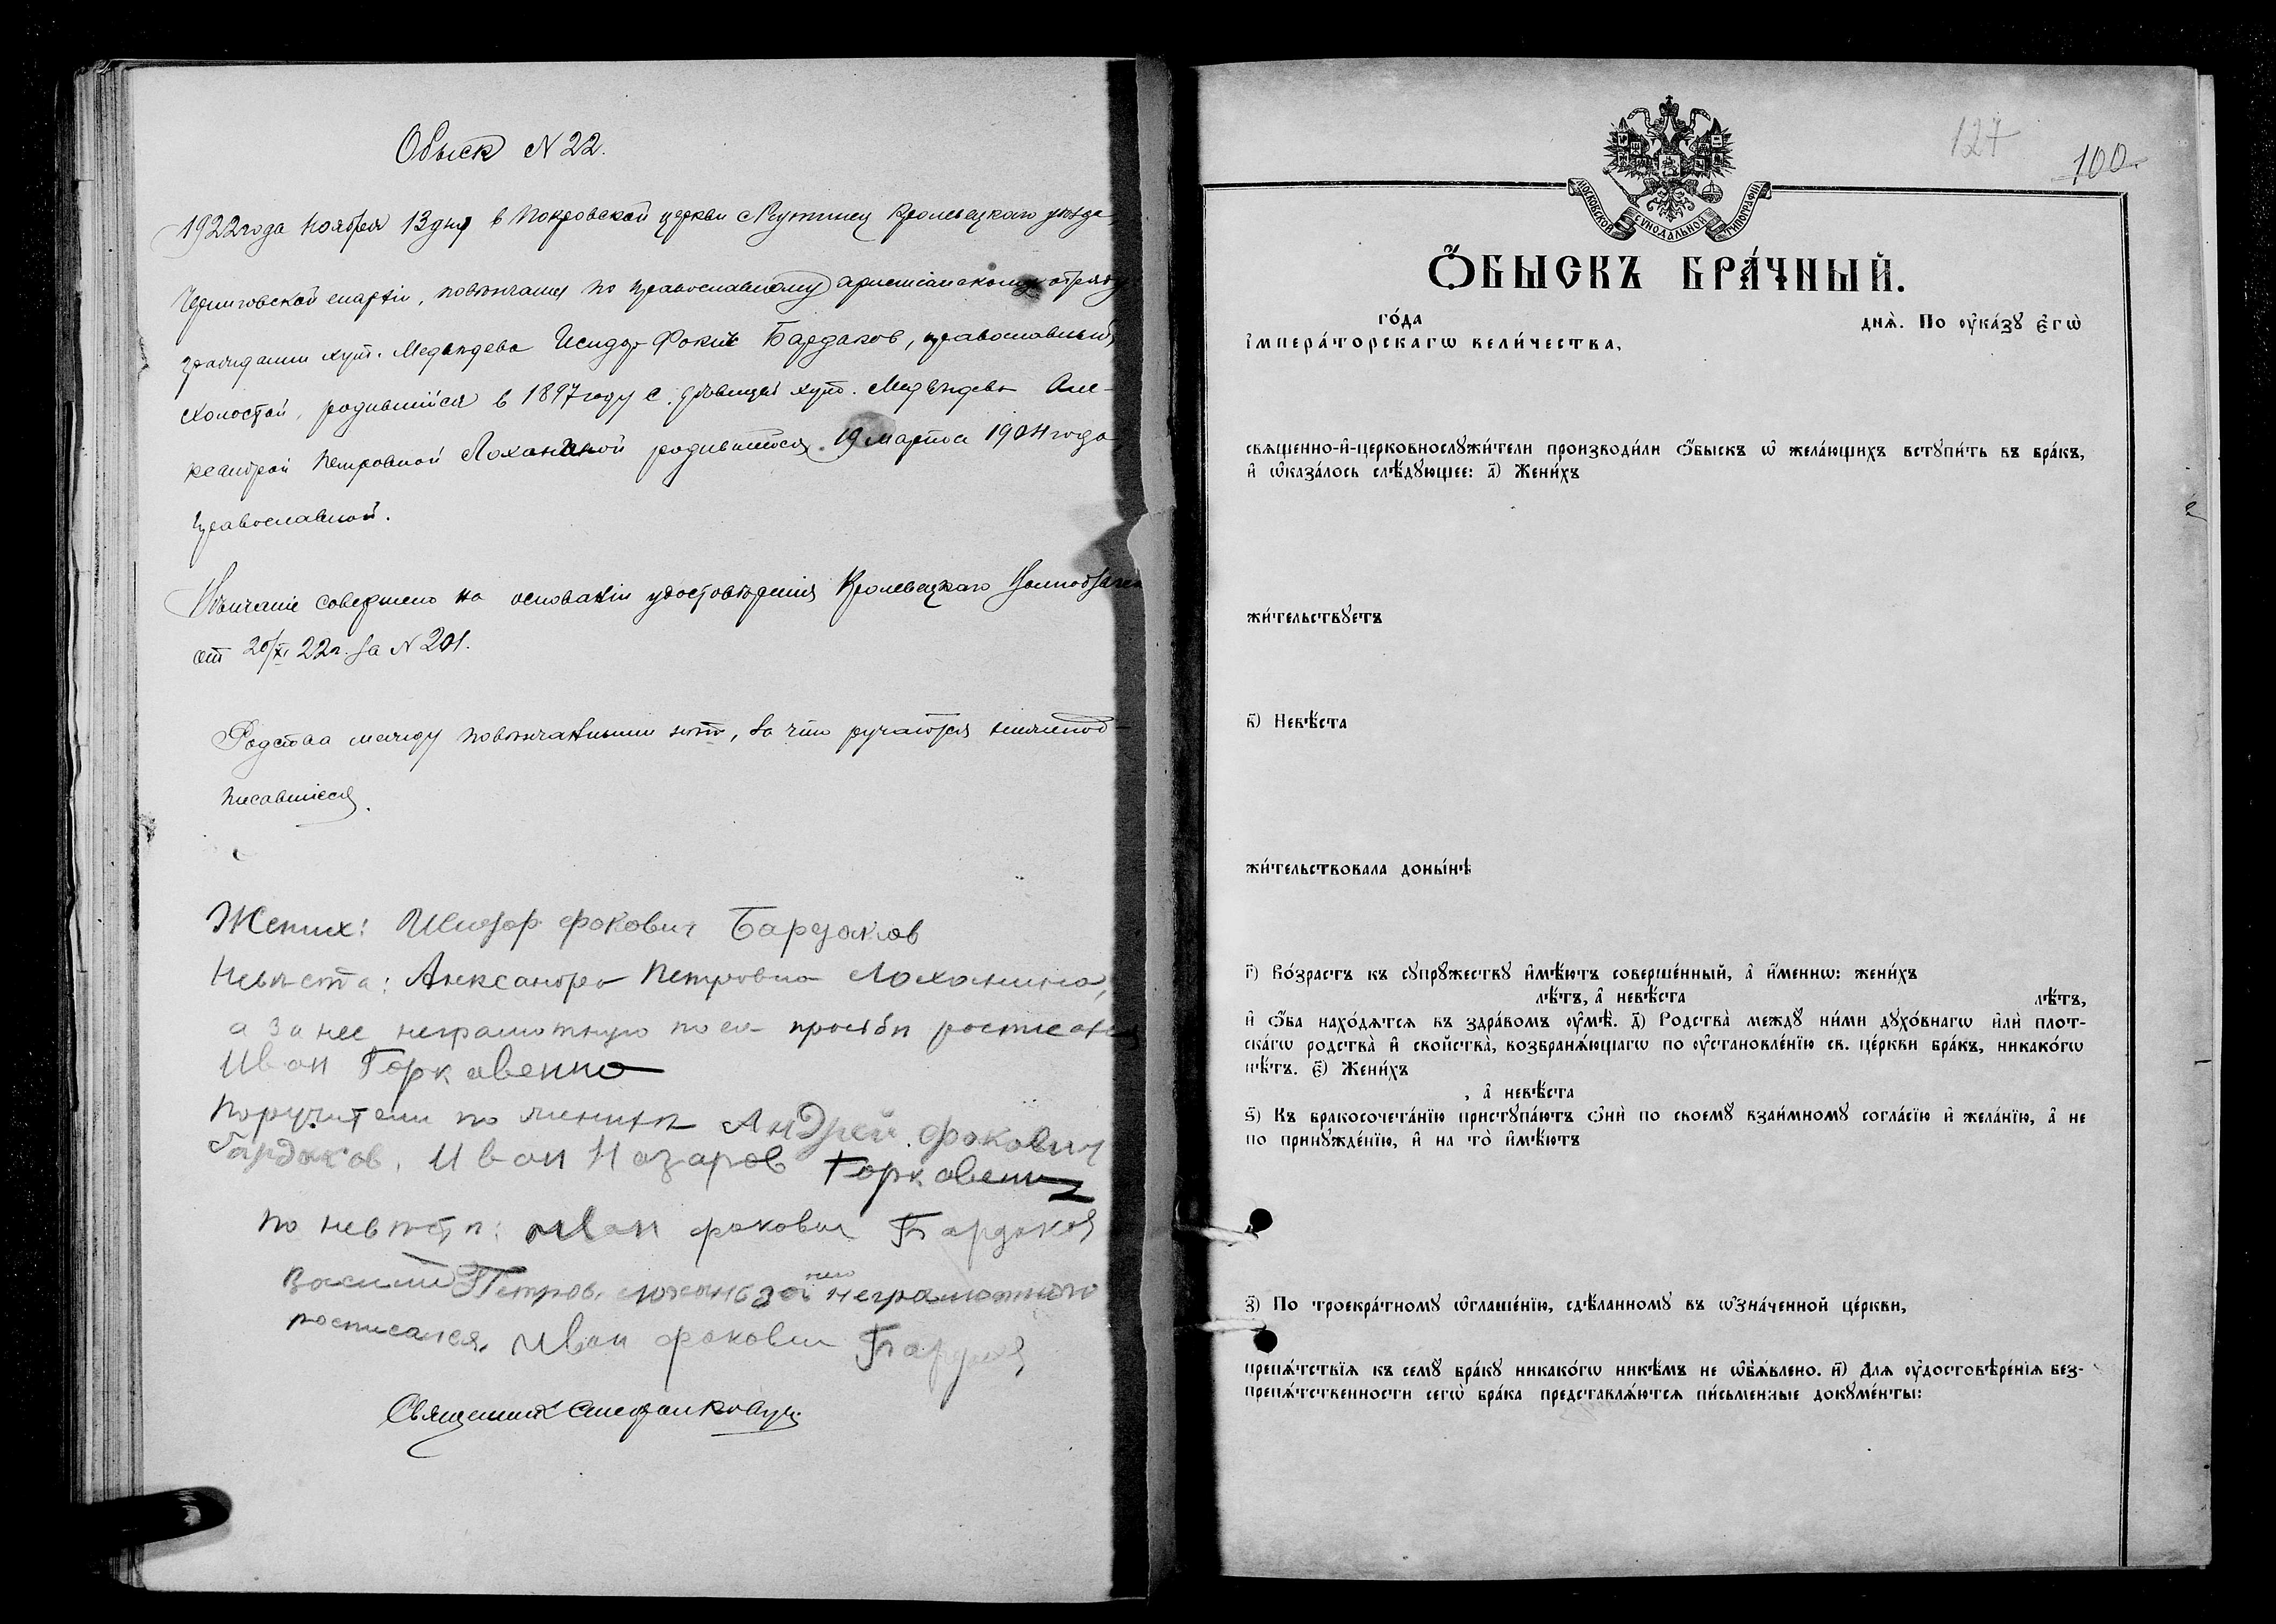 Обыск N 22.
1922 года ноября 13 дня в Покровской церкви с. Кролевецкаго уезда,
Черниговской епархіи, повѣнчаны по православному христіанскому обряду
гражданин хут. Медвѣдева Исидор Фокич Бардаков, православный,
холостой, родившійся в 1897 году с девицей хут. Медвѣдева Але-
ксандрой Петровной Лоханиной родившейся 19 марта 1904 года
православной.
Вѣнчаніе совершено на основаніи удостовѣренія Кролевецкаго
от 20/XI 22 г. за N 201.
Родства между повѣнчавшими нѣт, в чем ручаются нижепод-
писавшіеся.
Жених: Исидор Фокович Бардаков
Невѣста: Александра Петровна Лоханина,
а за нее неграмотную по ея просьбѣ росписался
Иван Горкавенко
Поручители по женихѣ Андрей Фокович
Бардаков, Иван Назаров Горкавенко
по невѣстѣ: Иван Фокович Бардаков
Василий Петров. за него неграмотного
росписался Иван Фокович Бардаков
Священник
127
100
МОСКОВСКОЙ СѴНОДАЛЬНОЙ ТИПОГРАФІИ
Ѻ҆БЫСКЪ БРА́ЧНЫЙ.
го́да дня̀. По ᲂу҆ка́зꙋ є҆гѡ̀
і҆мпера́торскагѡ вели́чества,
свѧщенно-и҆-церковнослꙋжи́тели производи́ли ѻ҆́быскъ ѡ҆ жела́ющихъ встꙋпи́ть въ бра́къ,
и҆ ѡ҆каза́лось слѣ́дꙋющее: а҃) Жени́хъ
жи́тельствꙋетъ
в҃) Невѣ́ста
жи́тельствовала доны́нѣ
г҃) Во́зрастъ къ сꙋпрꙋ́жествꙋ и҆мѣ́ютъ соверше́нный, а҆ и҆́меннѡ: жени́хъ
лѣ́тъ, а҆ невѣ́ста лѣ́тъ,
и҆ ѻ҆́ба нахо́дѧтсѧ въ здра́вомъ ᲂу҆мѣ̀. д҃) Родства̀ междꙋ̀ ни́ми дꙋхо́внагѡ и҆лѝ плот-
ска́гѡ родства̀ и҆ свойства̀, возбранѧ́ющагѡ по ᲂу҆становле́нїю св. це́ркви бра́къ, никако́гѡ
нѣ́тъ. є҃) Жени́хъ
, а҆ невѣ́ста
ѕ҃) Къ бракосочета́нїю пристꙋпа́ютъ ѻ҆нѝ по своемꙋ̀ взаи́мномꙋ согла́сїю и҆ жела́нїю, а҆ не
по принꙋжде́нїю, и҆ на то̀ и҆мѣ́ютъ
з҃) По троекра́тномꙋ ѡ҆глаше́нїю, сдѣ́ланномꙋ въ ѡ҆зна́ченной це́ркви,
препѧ́тствїѧ къ семꙋ̀ бра́кꙋ никако́гѡ никѣ́мъ не ѡ҆б̾ѧ́влено. и҃) Для ᲂу҆достовѣре́нїѧ без-
препѧ́тственности сегѡ̀ бра́ка представлѧ́ютсѧ пи́сьменные докꙋме́нты: